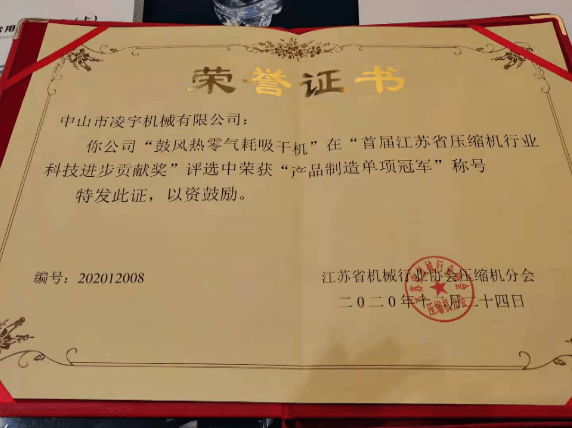 荣誉证书
中山市凌宇机械有限公司：
你公司“鼓风热零气耗吸干机”在“首届江苏省压缩机行业
科技进步贡献奖”评选中荣获“产品制造单项冠军”称号
特发此证，以资鼓励。
编号：202012008
江苏省机械行业协会压缩机分会
二0二0年十二月二十四日
压缩机分会